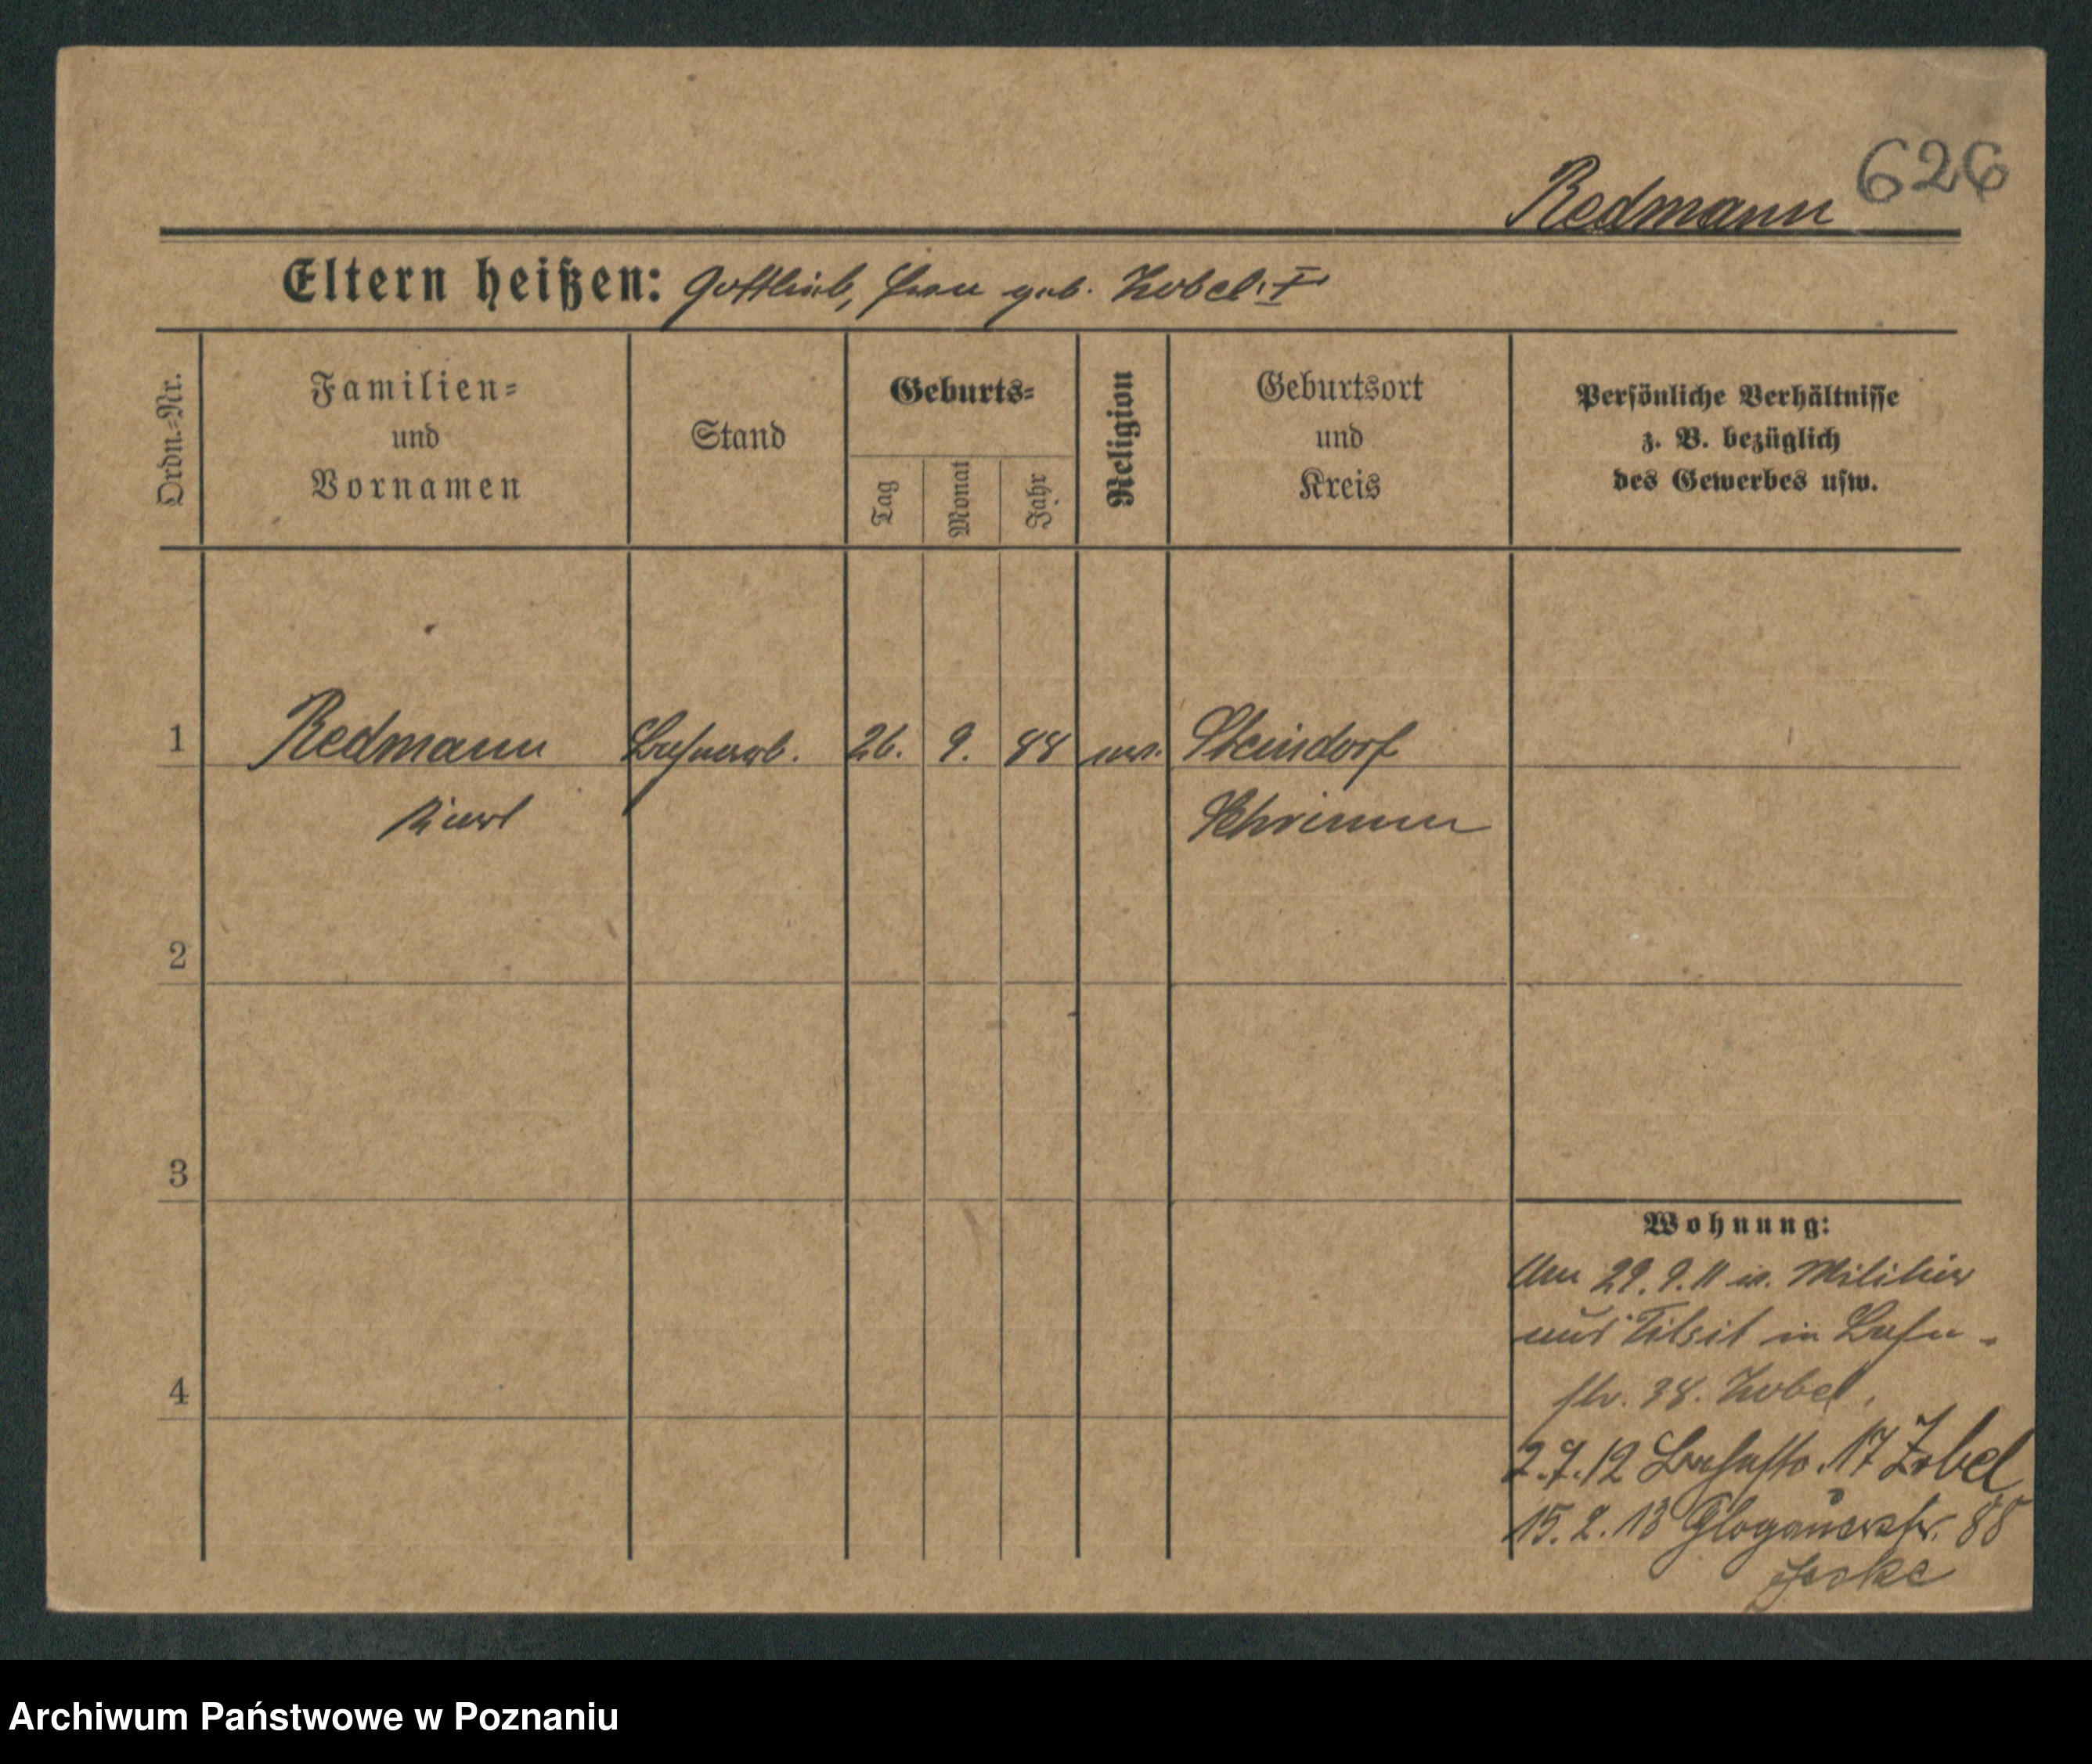 626
Redmann
Eltern heißen: Gottlieb, Frau geb. Zobel.
Ordn.-Nr.
Familien-
und
Vornamen
Stand
Geburts-
Tag
Monat
Jahr
Religion
Geburtsort
und
Kreis
Persönliche Verhältnisse
z. B. bezüglich
des Gewerbes usw.
1 Redmann 26. 9. 88 Steindorf
Schrimm
2
3
4
Wohnung:
29.9.11 v. Militär
aus Tilsit in Bahn-
str. 38. Zobel.
17 Zobel
15.2.13 Glogauerstr. 88
Jeske
Archiwum Państwowe w Poznaniu